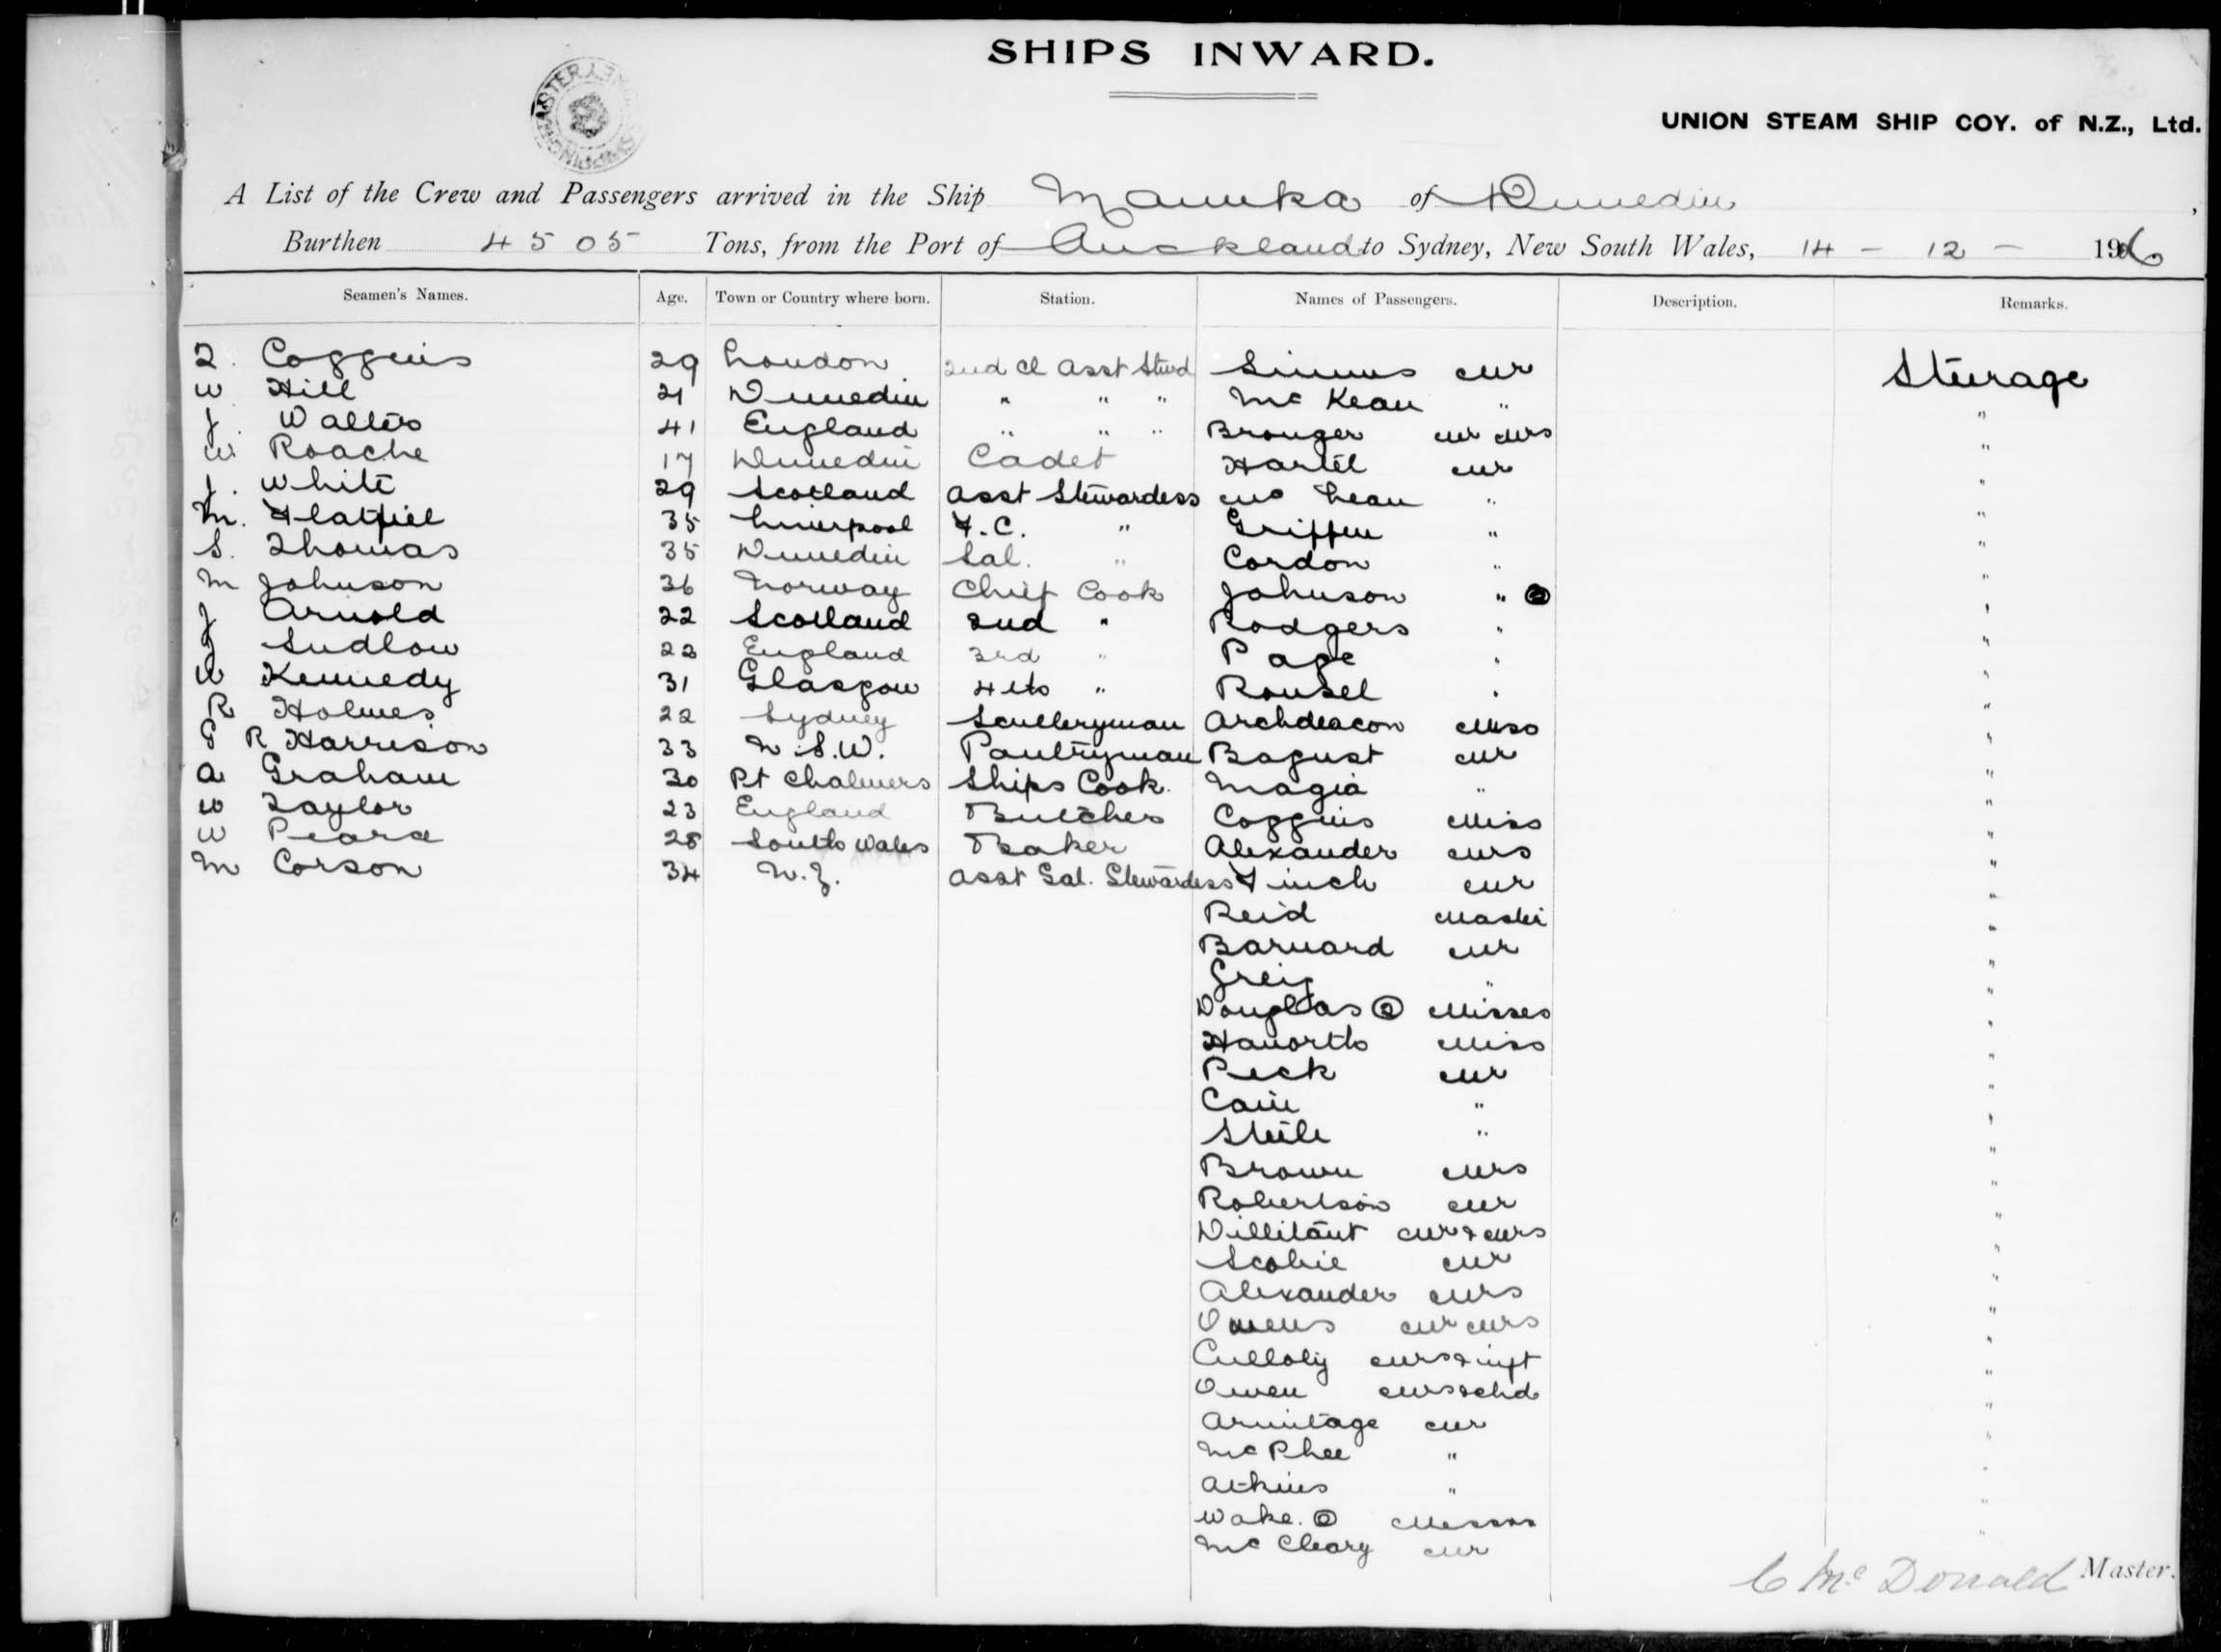 SHIPS INWARD.
UNION STEAM SHIP COY. of N.Z., Ltd.
A List of the Crew and Passengers arrived in the Ship Manuka of Dunedin,
Burthen 4505 Tons, from the Port of Auckland to Sydney, New South Wales, 14 - 12 - 1906
Seamen's Names. Age. Town or Country where born. Station. Names of Passengers. Description. Remarks.
T. Coggins 29 London 2nd Cl Asst Stwd Simms Mr Steerage
W Hill 21 Dunedin " " " McKean " "
J. Walters 41 England " " " Brouger Mr Mrs "
W. Roache 17 Dunedin Cadet Hartel Mr "
J. White 29 Scotland Asst Stewardess McLean " "
M. Flatfiel 35 Liverpool F.C. " Griffin " "
S. Thomas 35 Dunedin Sal. " Cordon " "
M Johnson 36 Norway Chief Cook Johnson " 2 "
J Arnold 22 Scotland 2nd " Rodgers " "
J Sudlow 22 England 3rd " Page " "
W Kennedy 31 Glasgow 4th " Rousel " "
R Holmes 22 Sydney Sculleryman Archdeacon Miss "
P R Harrison 33 N.S.W. Pantryman Bagust Mr "
A Graham 30 Pt Chalmers Ships Cook. Magia " "
W Taylor 23 England Butcher Coggins Miss "
W Pearce 28 South Wales Baker Alexander Mrs "
M Corson 34 N.Z. Asst Sal. Stewardess Finch Mr "
Reid Master "
Barnard Mr "
Greig " "
Douglas 2 Misses "
Haworth Miss "
Peck Mr "
Cain " "
Steele " "
Brown Mrs "
Robertson Mr "
Dillitant Mr & Mrs "
Scobie Mr "
Alexander Mrs "
Owens Mr Mrs "
Mrs & inft "
Owen Mrs & chd "
Armitage Mr "
McPhee " "
Atkins " "
Wake. 2 "
McCleary Mr "
C McDonald Master.